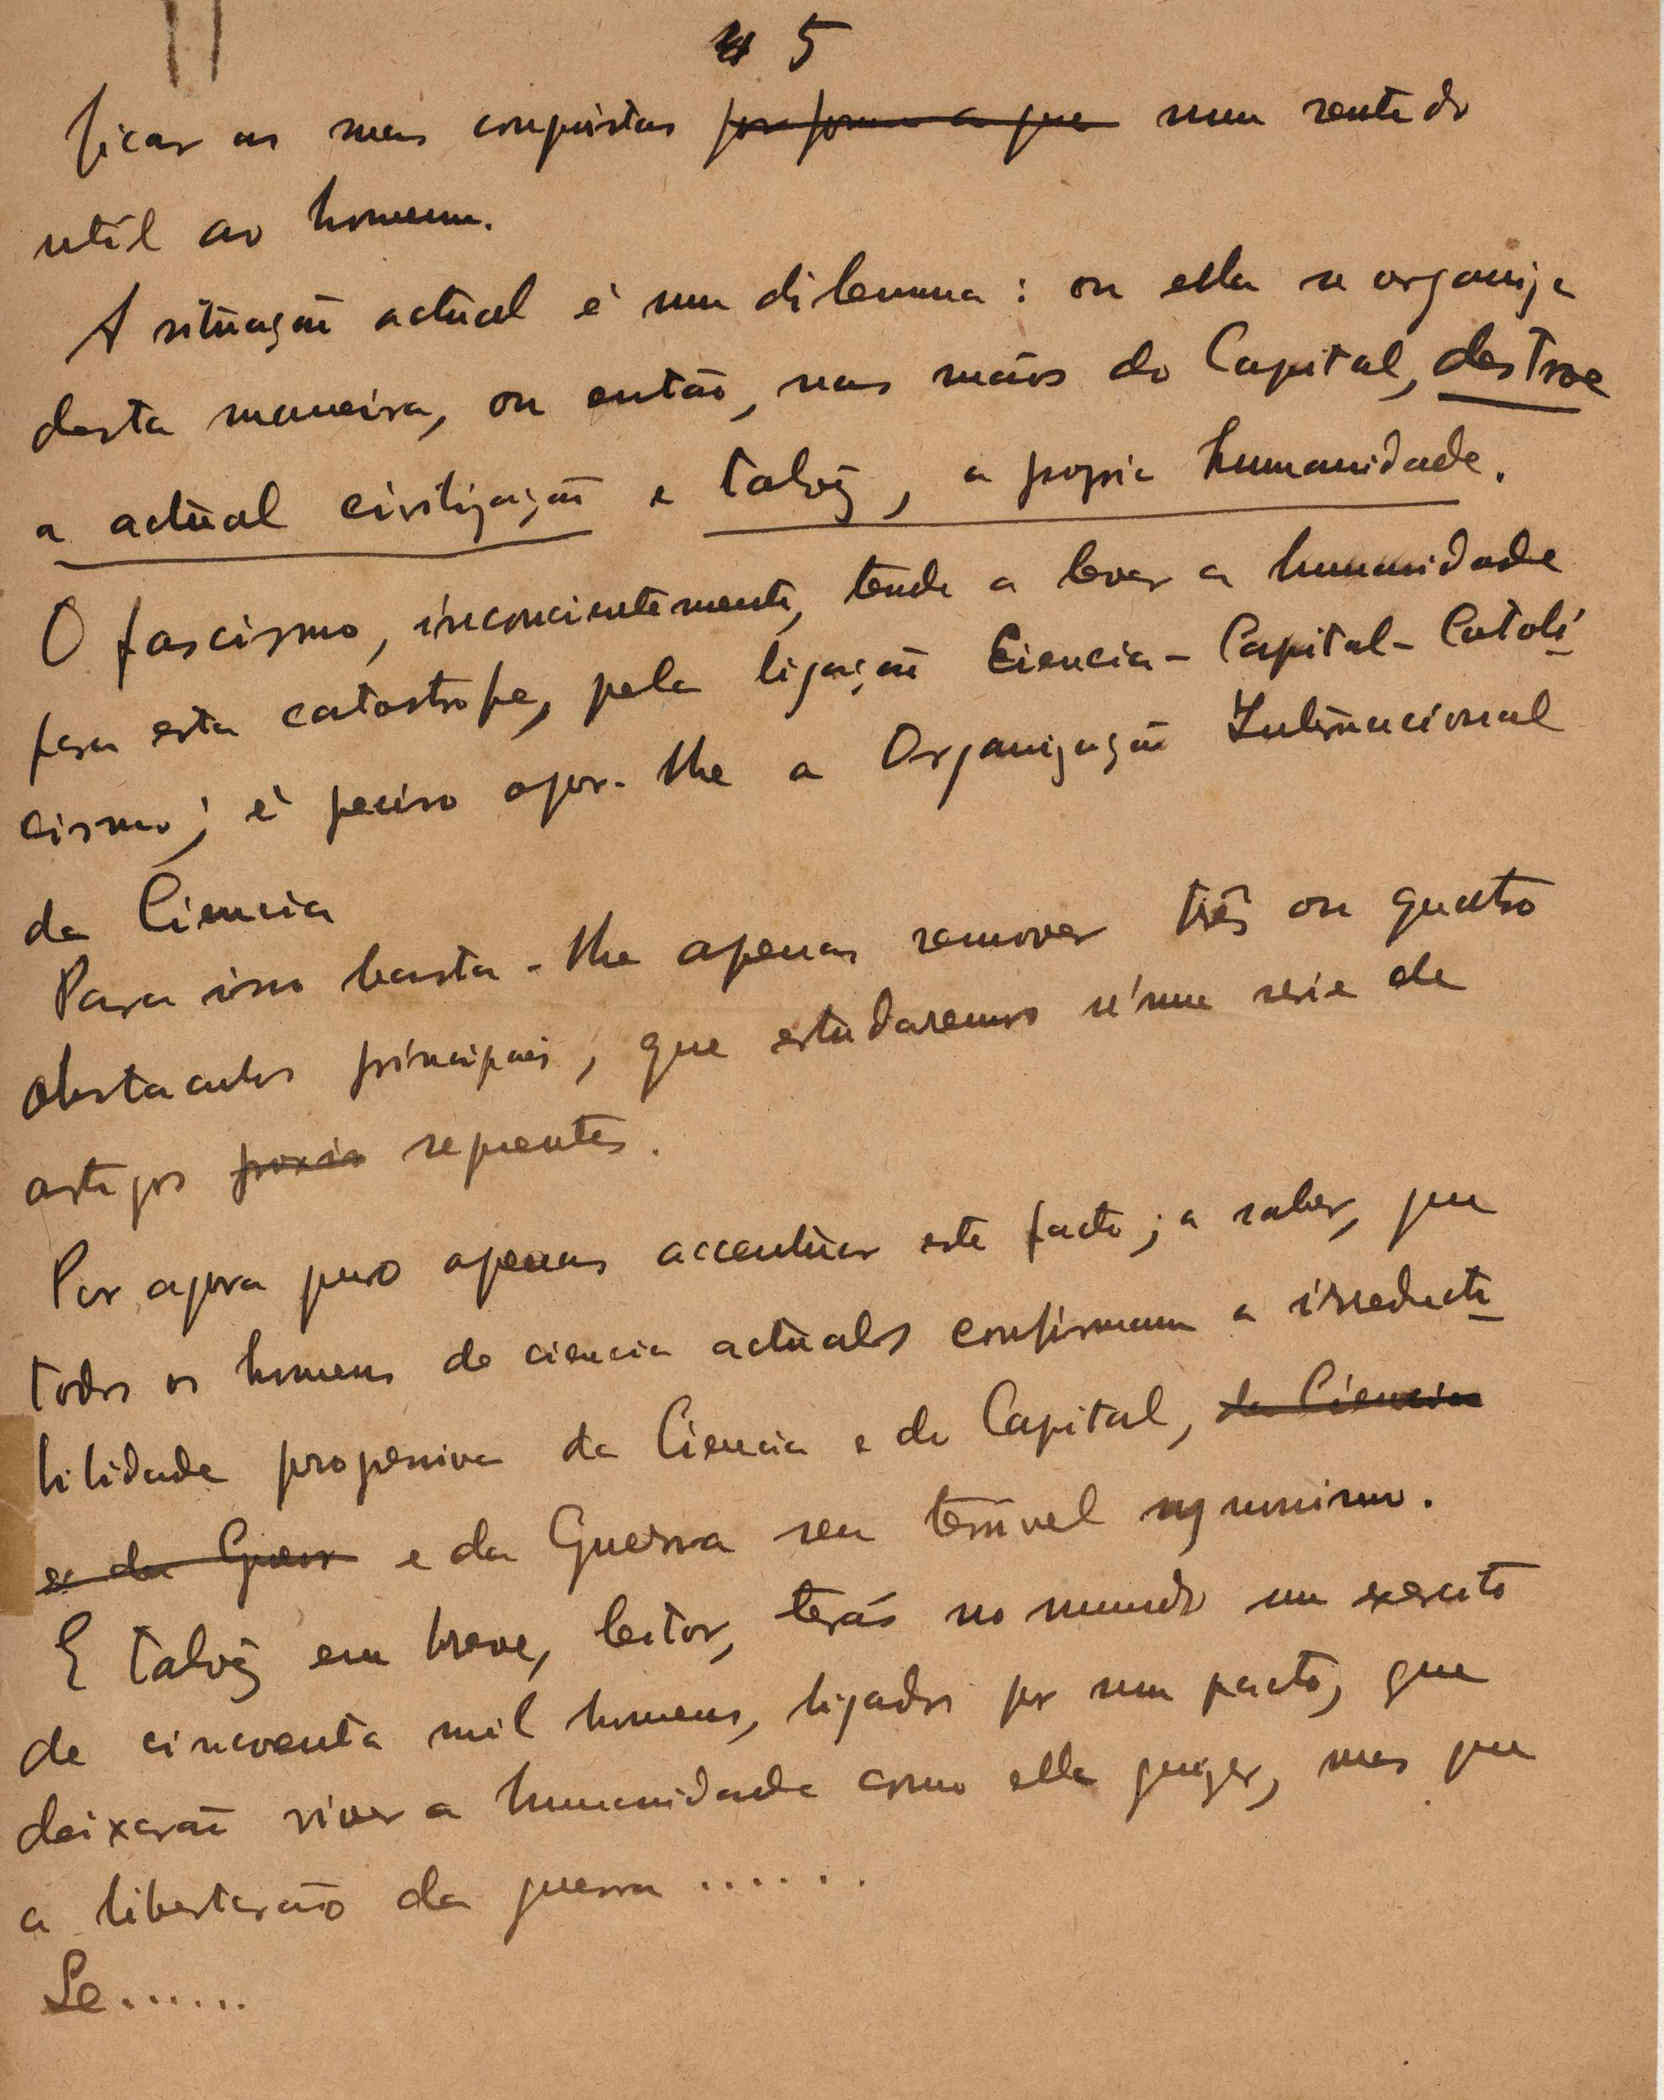 4 5
ficar as suas conquistas por forma a que num sentido
util ao homem.
A situação actual é um dilemma: ou ella se organiza
desta maneira, ou então, nas mãos do Capital, destroe
a actual civilização e talvez, a propria humanidade.
O fascismo, inconcientemente, tende a levar a humanidade
para esta catastrofe, pela ligação Ciencia-Capital-Catoli
cismo; é preciso opor-lhe a Organização Internacional
da Ciencia
Para isso basta-lhe apenas remover três ou quatro
obstaculos principais, que estudaremos n'uma serie de
artigos proxi seguentes.
Por agora quero apenas accentuar este facto; a saber, que
todos os homens de ciencia actuaes confirmam a irreducti
bilidade progressiva da Ciencia e do Capital, da Ciencia
e da Guerr e da Guerra seu terrivel synonimo.
E talvez em breve, leitor, terás no mundo um exercito
de cincoenta mil homens, ligados por um pacto, que
deixarão viver a humanidade como ella quizer, mas que
a libertarão da guerra ......
Se......